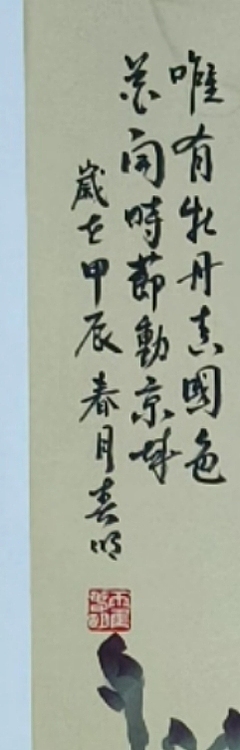 唯有牡丹真國色
花開時節動京城
歲在甲辰春月春明